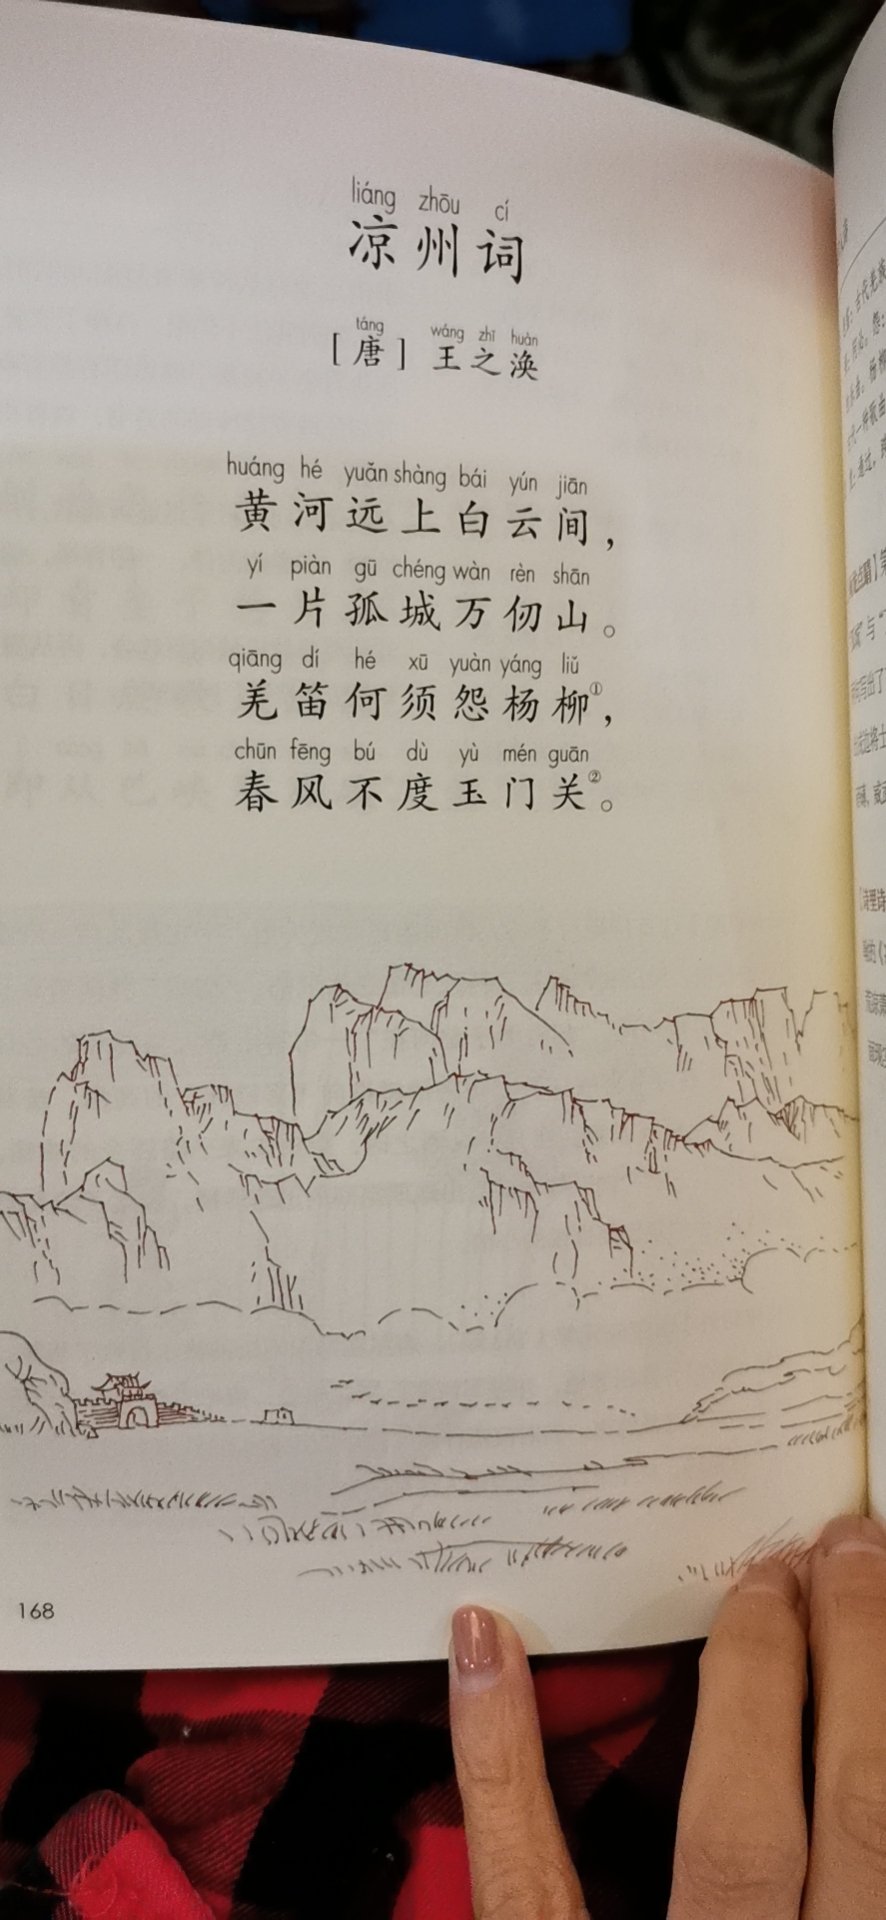 liáng zhōu cí
凉州词
táng wáng zhī huàn
[唐] 王之涣
huáng hé yuǎn shàng bái yún jiān
黄河远上白云间，
yí piàn gū chéng wàn rèn shān
一片孤城万仞山。
qiāng dí hé xū yuàn yáng liǔ
羌笛何须怨杨柳①，
chūn fēng bú dù yù mén guān
春风不度玉门关②。
168